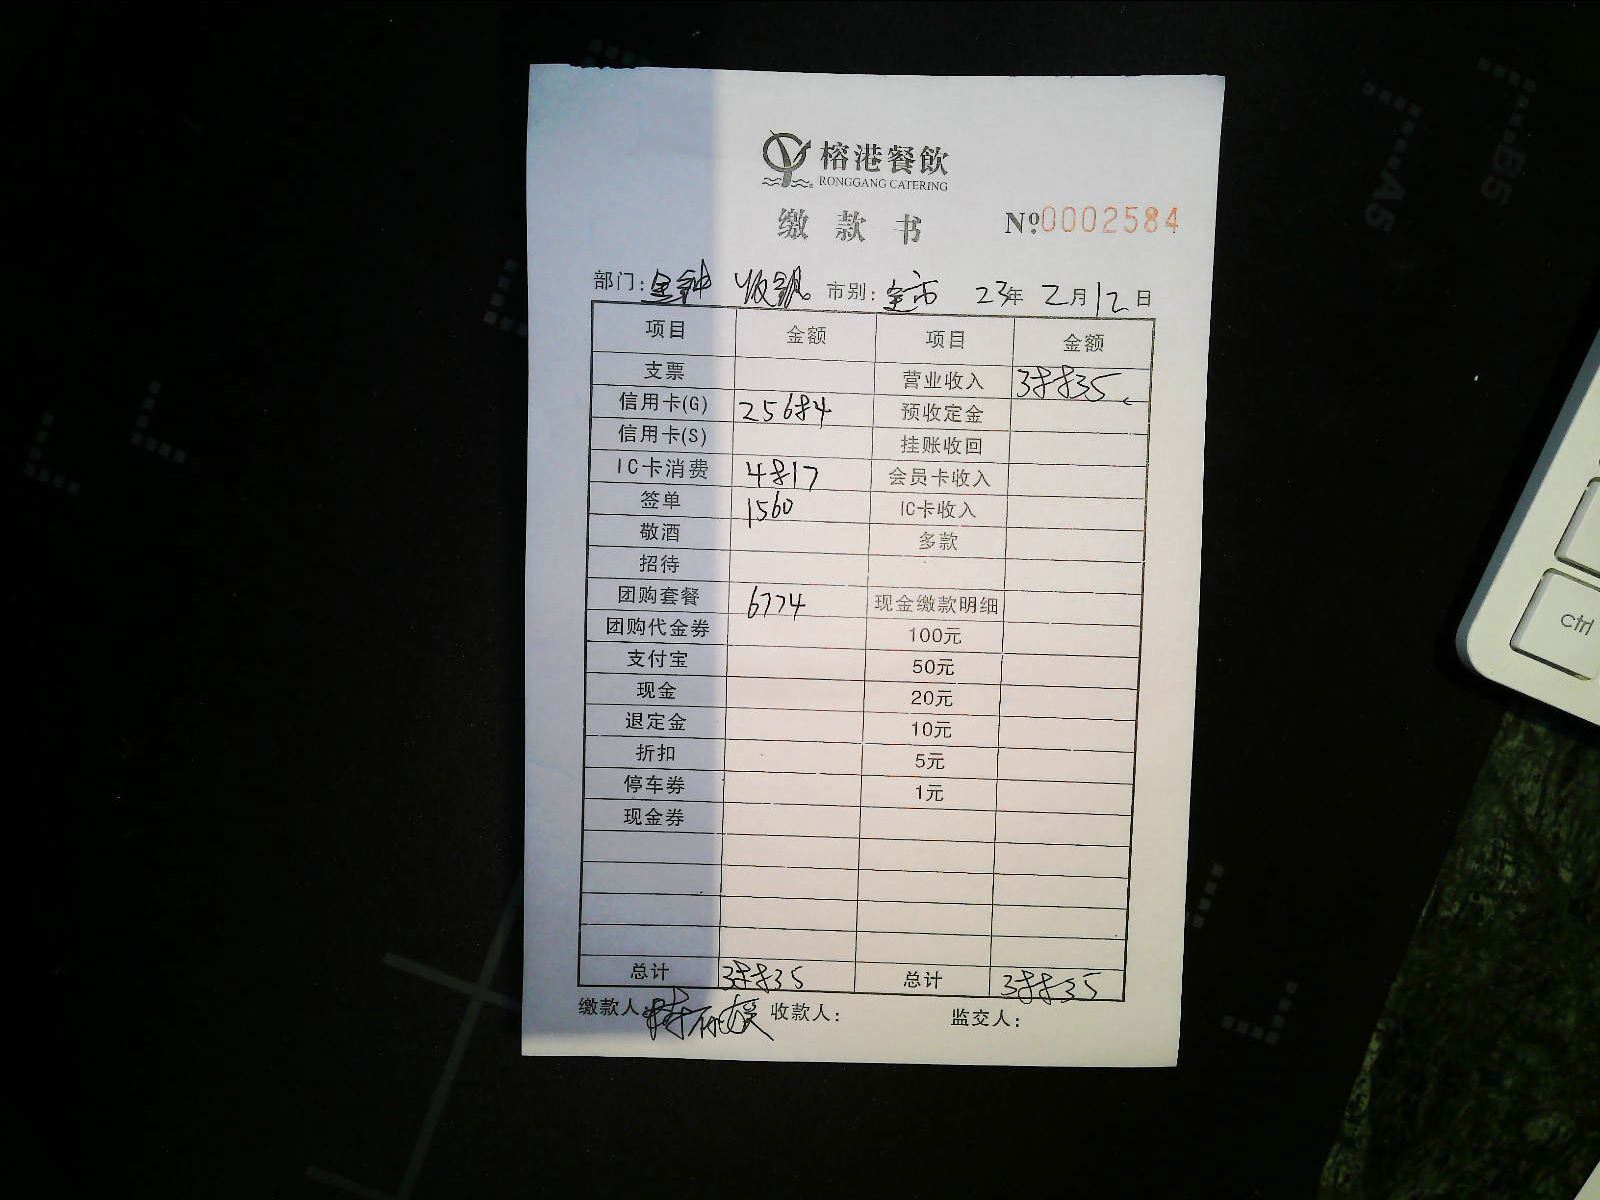 榕港餐飲
RONGGANG CATERING
缴款书 №0002584
部门: 金钟 收银 市别: 全市 23年2月12日
项目 金额 项目 金额
支票 营业收入 38835
信用卡(G) 25684 预收定金
信用卡(S) 挂账收回
IC卡消费 4817 会员卡收入
签单 1560 IC卡收入
敬酒 多款
招待
团购套餐 6774 现金缴款明细
团购代金券 100元
支付宝 50元
现金 20元
退定金 10元
折扣 5元
停车券 1元
现金券
总计 38835 总计 38835
缴款人: 收款人: 监交人:
A5
B5
ctrl